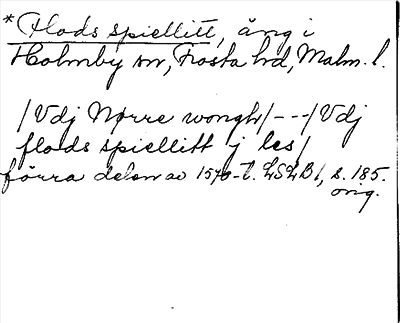 *Flods spiellitt, äng i
Holmby sn, Frosta hd, Malm. l.
/Vdj Nørre wongh/---/Vdj
flods spiellitt j les/
förra delen av 1570-t. LSLB1, s. 185.
orig.